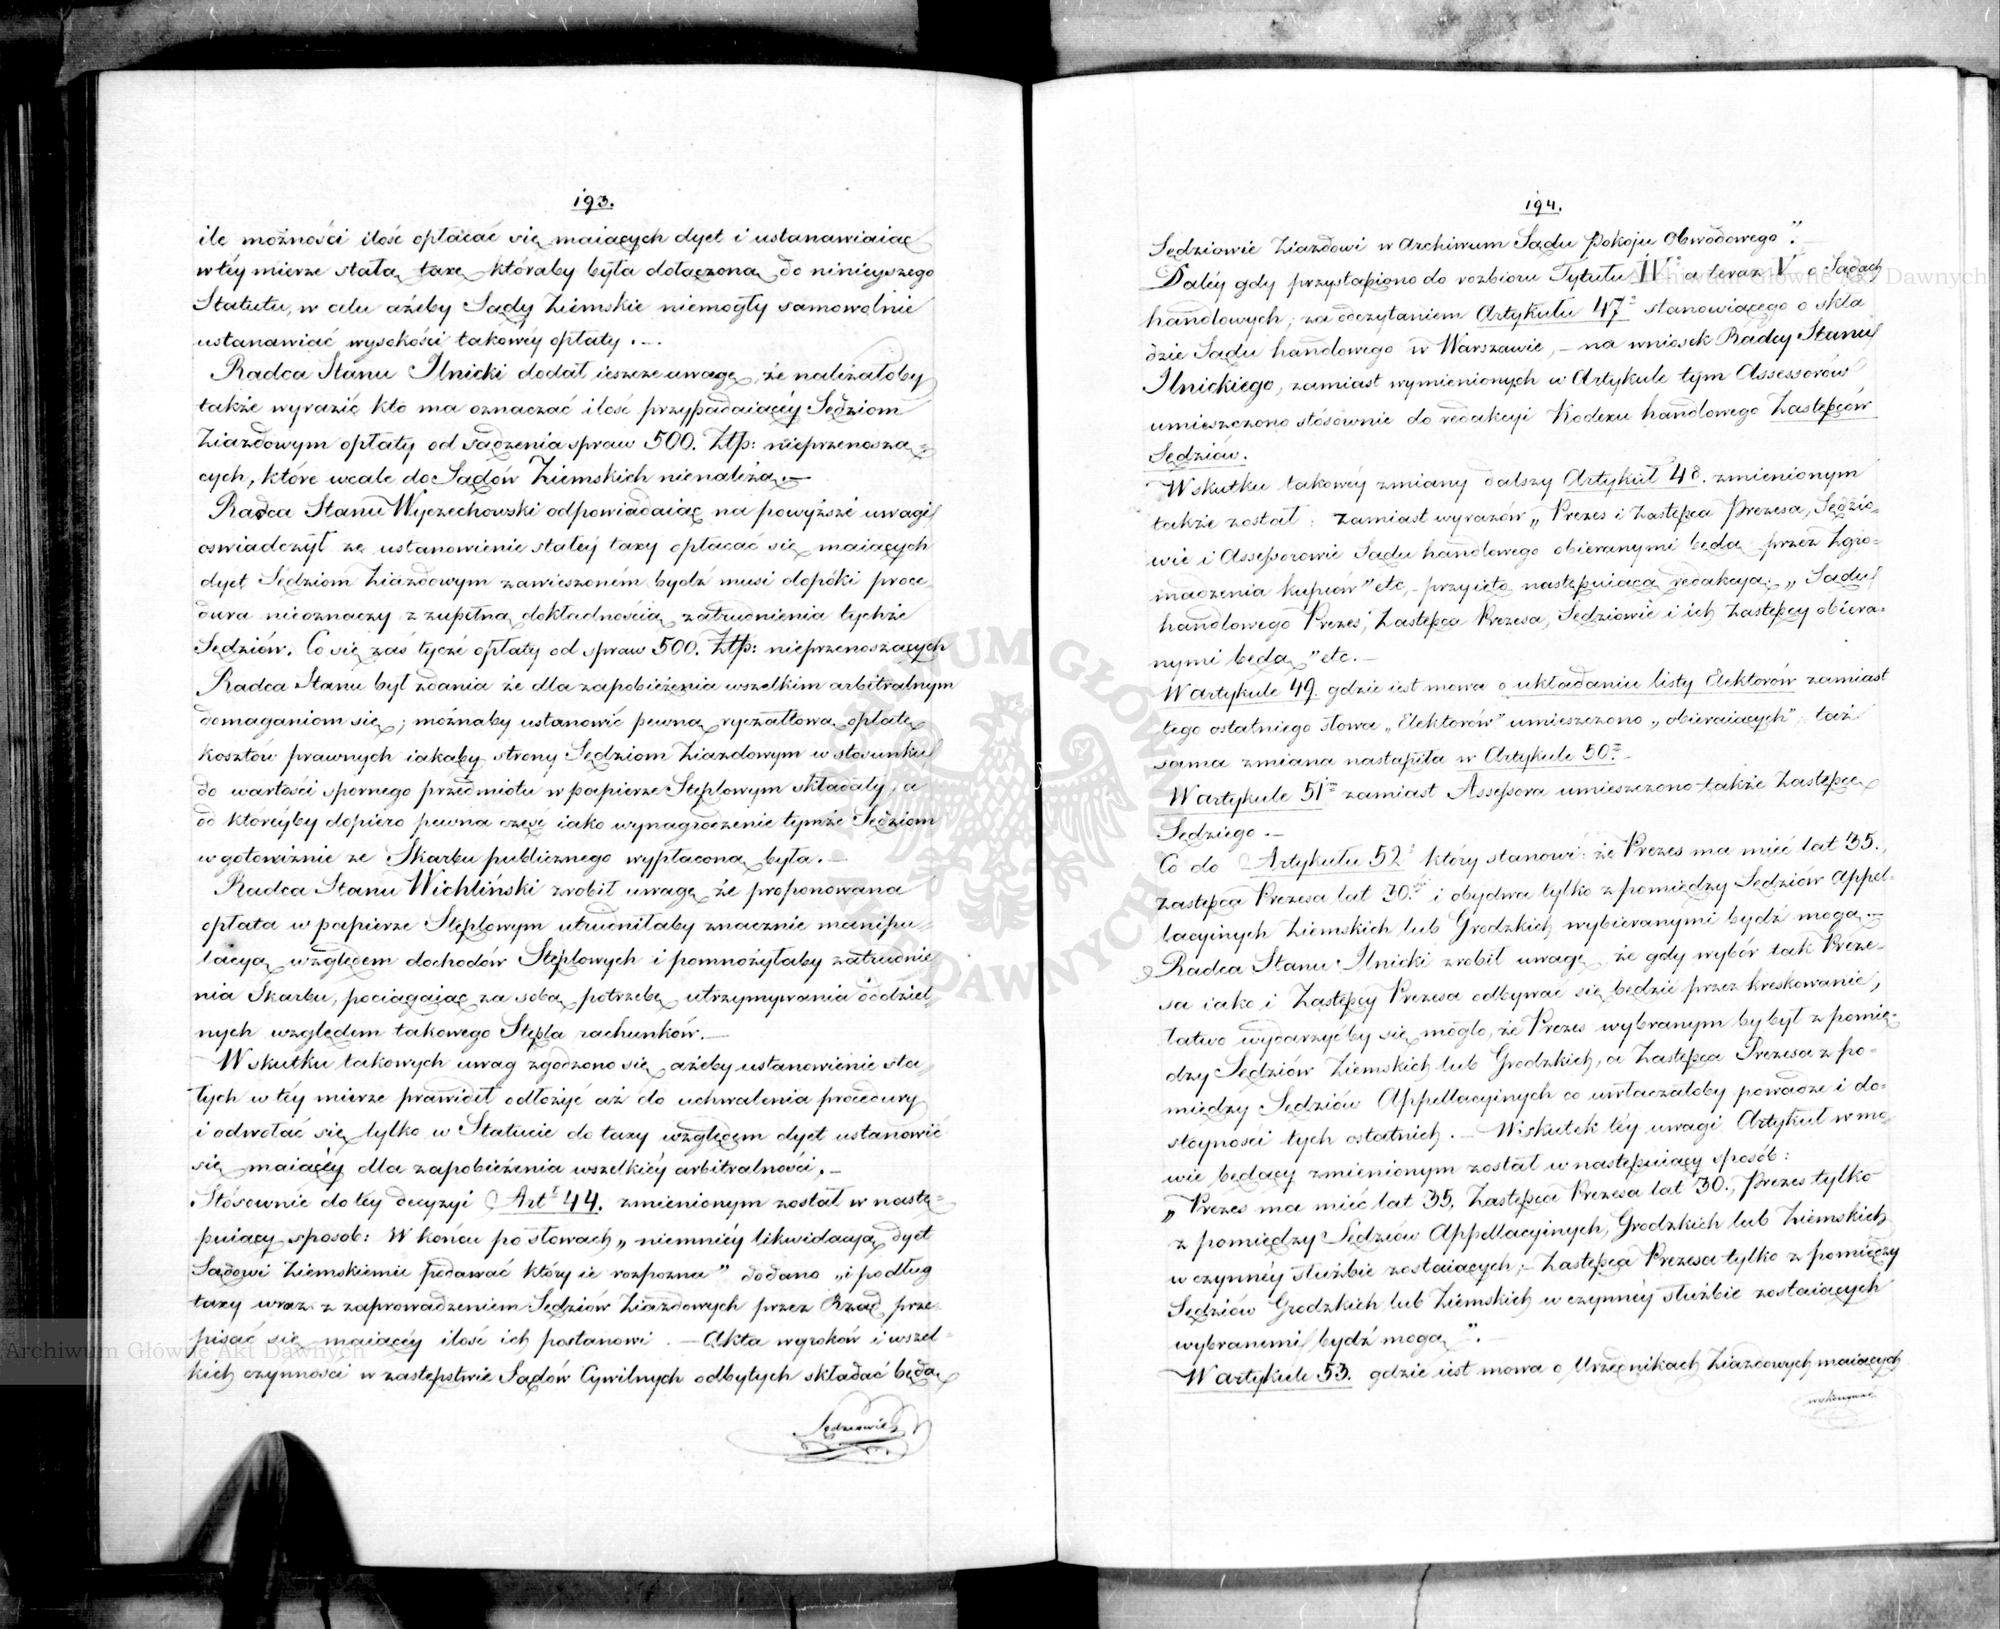 193.
ile możności ilość opłacać się maiących dyet i ustanawiaiąc
w téy mierze stałą taxę któraby była dołączoną do ninieyszego
Statutu, w celu ażeby Sądy Ziemskie niemogły samowolnie
ustanawiać wysokości takowéy opłaty. —
Radca Stanu Ilnicki dodał ieszcze uwagę, że należałoby
także wyrazić kto ma oznaczać ilość przypadaiącéy Sędziom
Ziazdowym opłaty od sądzenia spraw 500. Złp: nieprzenoszą-
cych, które wcale do Sądów Ziemskich nienależą. —
Radca Stanu Wyczechowski odpowiadaiąc na powyższe uwagi
oswiadczył że ustanowienie stałéy taxy opłacać się maiących
dyet Sędziom Ziazdowym zawieszoném bydź musi dopóki proce-
dura nieoznaczy z zupełną dokładnością zatrudnienia tychże
Sędziów. Co się zaś tycze opłaty od spraw 500. Złp: nieprzenoszących
Radca Stanu był zdania że dla zapobieżenia wszelkim arbitralnym
domaganiom się, możnaby ustanowić pewną ryczałtową opłatę
kosztow prawnych iakąby strony Sędziom Ziazdowym w stosunku
do wartości spornego przedmiotu w papierze Stęplowym składały, a
od któréyby dopiero pewna częsc iako wynagrodzenie tymże Sędziom
w gotowiznie ze Skarbu publicznego wypłaconą była. —
Radca Stanu Wichliński zrobił uwagę że proponowana
opłata w papierze Stęplowym utrudniłaby znacznie manipu-
lacyą względem dochodów Stęplowych i pomnożyłaby zatrudnie-
nia Skarbu, pociągaiąc za sobą potrzebę utrzymywania oddziel-
nych względem takowego Stępla rachunków. —
W skutku takowych uwag zgodzono się, ażeby ustanowienie sta-
łych w téy mierze prawideł odłożyć aż do uchwalenia procedury
i odwołać się tylko w Statucie do taxy względem dyet ustanowić
się maiącéy dla zapobieżenia wszelkiéy arbitralności. —
Stósownie do tey decyzyi Artł 44. zmienionym został w nastę-
puiący sposob: W końcu po słowach „niemniéy likwidacyą dyet
Sądowi Ziemskiemu podawać który ie rozpozna” dodano „i podług
taxy wraz z zaprowadzeniem Sędziów Ziazdowych przez Rząd prze-
pisać się maiącéy ilość ich postanowi. — Akta wyroków i wszel-
kich czynności w zastępstwie Sądów Cywilnych odbytych składać będą
Sędziowie
194.
Sędziowie Ziazdowi w Archiwum Sądu Pokoju Obwodowego”. —
Daléy gdy przystąpiono do rozbioru Tytułu IVo a teraz V o Sądach
handlowych; za odczytaniem Artykułu 47o stanowiącego o skła
dzie Sądu handlowego w Warszawie, — na wniosek Radcy Stanu
Ilnickiego, zamiast wymienionych w Artykule tym Assessorów
umieszczono stósownie do redakcyi Kodexu handlowego Zastępców
Sędziów.
W skutku takowéy zmiany dalszy Artykuł 48. zmienionym
także został: zamiast wyrazów „Prezes i Zastępca Prezesa, Sędzio-
wie i Assessorowie Sądu handlowego obieranymi będą przez Zgro-
madzenia kupców” etc. — przyięto następuiącą redakcyą: „Sądu
handlowego Prezes, Zastępca Prezesa, Sędziowie i ich Zastępcy obiera-
nymi będą” etc. —
W artykule 49. gdzie iest mowa o układaniu listy Elektorów zamiast
tego ostatniego słowa „Elektorów” umieszczono „obieraiących”, taż
sama zmiana nastąpiła w Artykule 50m —
W artykule 51m zamiast Assessora umieszczono także Zastępcę
Sędziego. —
Co do Artykułu 52o który stanowi: że Prezes ma mieć lat 35.,
zastępca Prezesa lat 30. i obydwa tylko z pomiędzy Sędziów Appel-
lacyinych Ziemskich lub Grodzkich wybieranymi bydź mogą. —
Radca Stanu Ilnicki zrobił uwagę, że gdy wybór tak Preze-
sa iako i Zastępcy Prezesa odbywać się będzie przez kreskowanie,
łatwo wydarzyć by się mogło, że Prezes wybranym by był z pomię-
dzy Sędziów Ziemskich lub Grodzkich, a Zastępca Prezesa z po-
między Sędziów Appellacyinych co uwłaczałoby powadze i do-
stoyności tych ostatnich. — W skutek téy uwagi Artykuł w mo-
wie będący zmienionym został w następuiący sposób:
„Prezes ma mieć lat 35, Zastępca Prezesa lat 30., Prezes tylko
z pomiędzy Sędziów Appellacyinych, Grodzkich lub Ziemskich
w czynnéy służbie zostaiących; — Zastępca Prezesa tylko z pomiędzy
Sędziów Grodzkich lub Ziemskich w czynnéy służbie zostaiących
wybranemi bydź mogą”. —
W artykule 53. gdzie iest mowa o Urzędnikach Ziazdowych maiących
wykonywać
Archiwum Główne Akt Dawnych
Archiwum Główne Akt Dawnych
ARCHIWUM GŁÓWNE AKT DAWNYCH